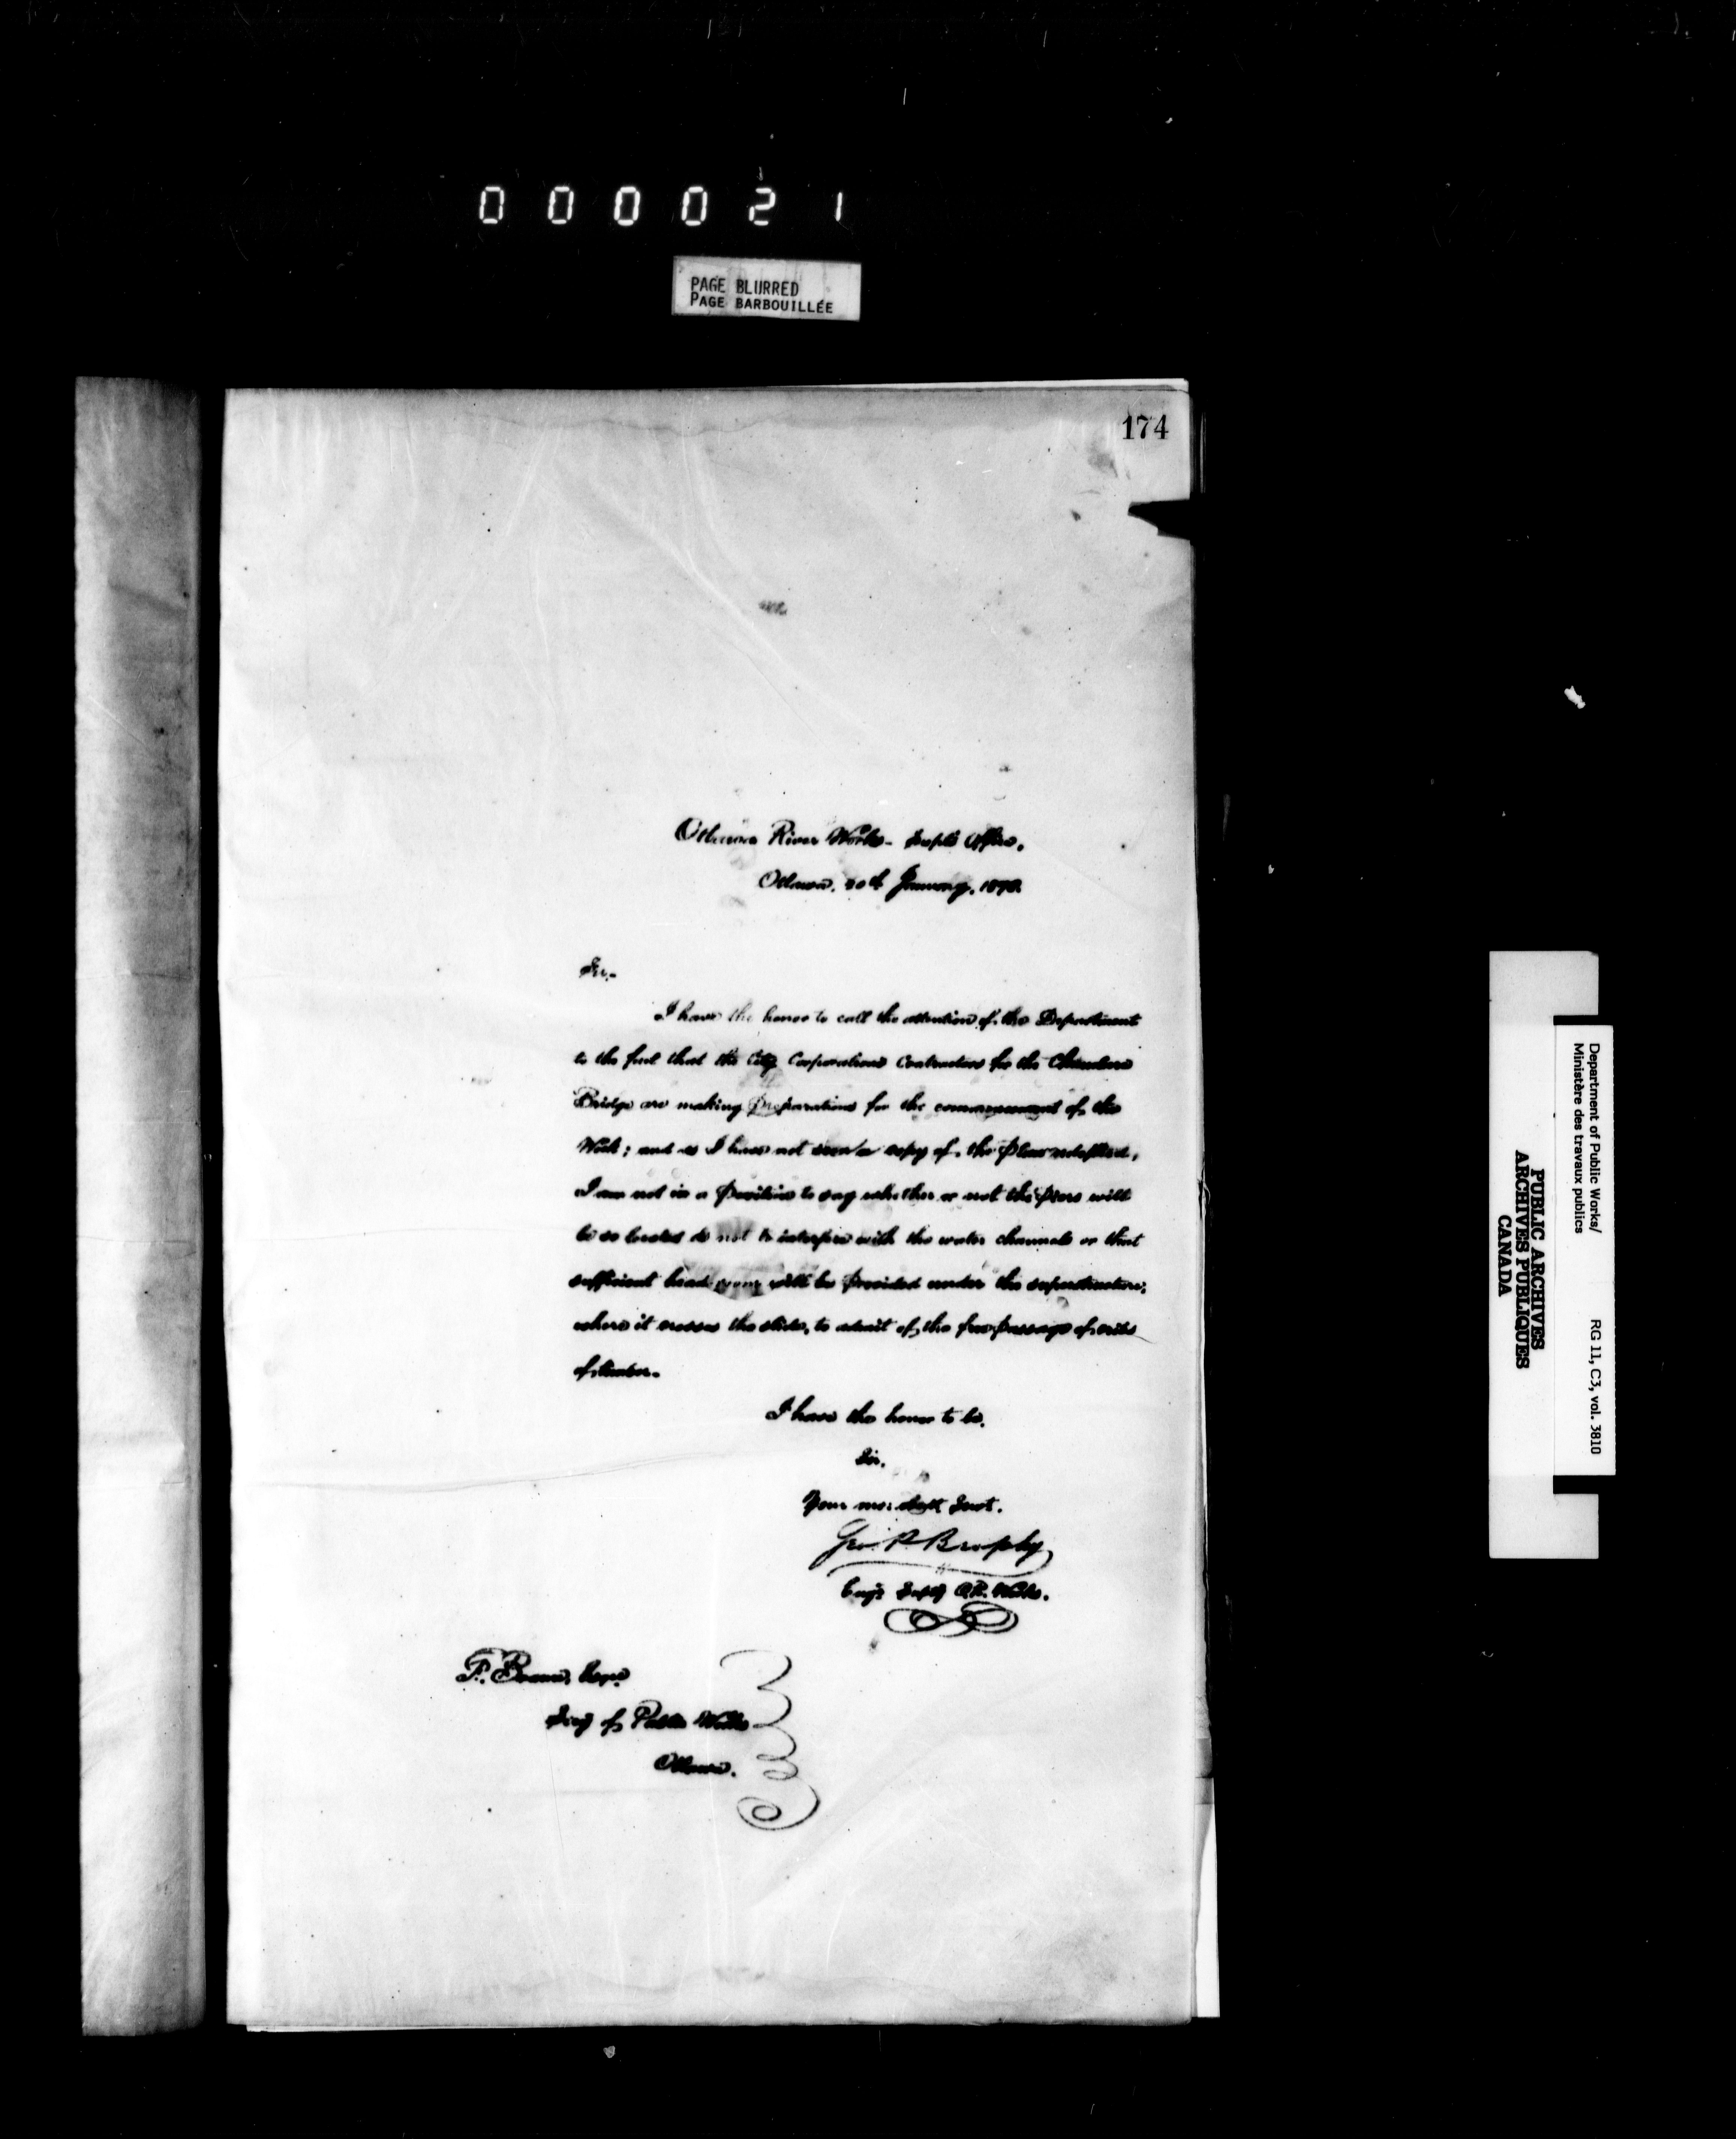 000021
PAGE BLURRED
PAGE BARBOUILLÉE
174
Ottawa River Works - Supt's Office,
Ottawa, 20th January, 1873.
Sir,-
I have the honor to call the attention of the Department
to the fact that the City Corporations Contractors for the Chaudiere
Bridge are making preparations for the commencement of the
Work; and as I have not seen a copy of the plans adopted,
I am not in a position to say whether or not the piers will
be so located as not to interfere with the water channels or that
sufficient head room will be provided under the superstructure,
where it crosses the slide, to admit of the free passage of cribs
of timber.-
I have the honor to be,
Sir,
Your mo: obdt Servt.
Geo. P. Brophy
Eng'r Supt'g O.R. Works.
F. Braun, Esqre
Secy of Public Works
Ottawa.
Department of Public Works/ RG 11, C3, vol. 3810
Ministère des travaux publics
PUBLIC ARCHIVES
ARCHIVES PUBLIQUES
CANADA